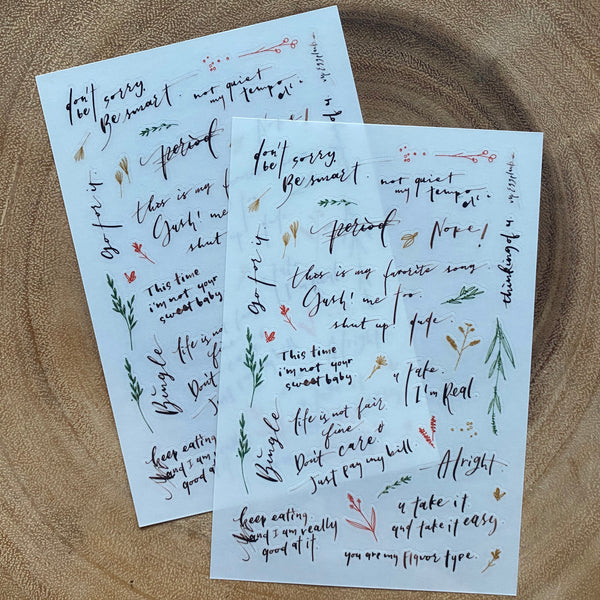 don't
be sorry.
Be smart.
not quiet
my tempo
period
go for y.
this is my
Gush! me
shut
This time
i'm not your
sweet baby
Bingle
life is no
fin
Don't
Just
keep eating
and I am
good at
don't
be sorry.
Be smart.
not quiet
my tempo
period
Nope!
go for y.
thinking of y.
this is my favorite song.
Gush! me too.
shut up! dude.
This time
i'm not your
sweet baby
u fake.
I'm Real.
Bingle
life is not fair.
fine
Don't care
Just pay my bill.
Alright.
keep eating.
and I am really
good at it.
u take it.
and take it easy
you are my flavor type.